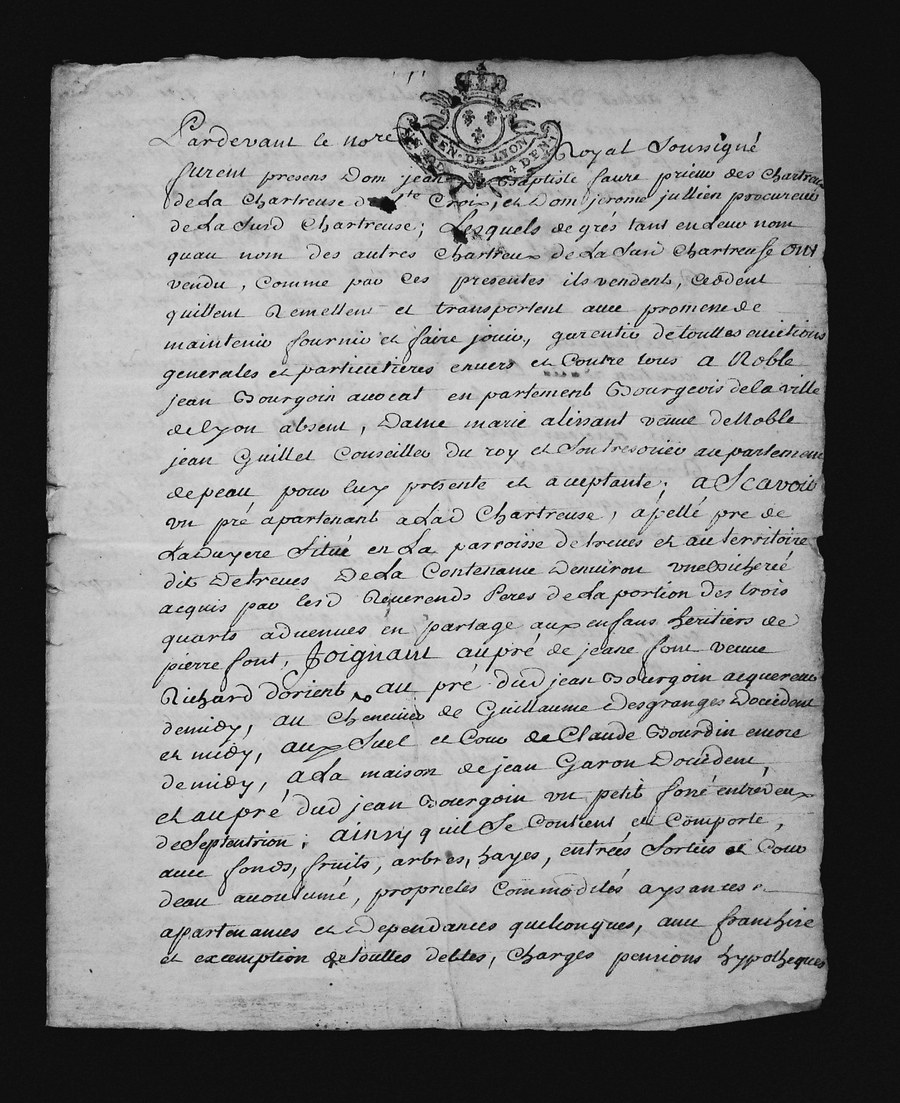 Pardevant le no.re Royal Soussigné
GEN. DE LYON
4 DEN.
furent presens Dom jean Baptiste faure prieur des Chartreux
de La Chartreuse de Ste Croix, et Dom jerome jullien procureur
de La Susd Chartreuse; Lesquels de grés tant en Leur nom
quau nom des autres Chartreux de La Susd Chartreuse Ont
vendu, comme par ces presentes ils vendent, ceddent
quittent Remettent et transportent avec promesse de
maintenir fournir et faire jouir, garentir de touttes evictions
generales et particulieres envers et Contre tous a Noble
jean Bourgoin avocat en parlement Bourgeois de la ville
de lyon absent, Dame marie alissant veuve de Noble
jean Guillet Conseiller du roy et Son tresorier au parlement
de peau pour luy presente et aceptante; a Scavoir
vn pré apartenant a Lad Chartreuse, apellé pre de
La Situé en La parroisse de treves et au territoire
dit de treves De La Contenance Denviron vne Bicherée
acquis par lesd Reverends Peres de La portion des trois
quarts advenues en partage aux enfans heritiers de
pierre font, Joignant au pré de jeane font veuve
Richard dorient, au pré dud jean Bourgoin acquereur
de midy, au Chemin de Guillaume Desgranges Doccident
et midy, aux Suel et Cour de Claude Bourdin encore
de midy, a La maison de jean Garon Doccident,
et au pré dud jean Bourgoin vn petit fossé entredeux
de Septentrion; ainsy quil Se Contient et Comporte,
avec fonds, fruits, arbres, hayes, entrées Sorties et Cour
deau acoutumé, proprietés Commodités aysances
apartenances et Dependances quelconques, avec franchise
et exemption de touttes debtes, Charges pensions hypotheques